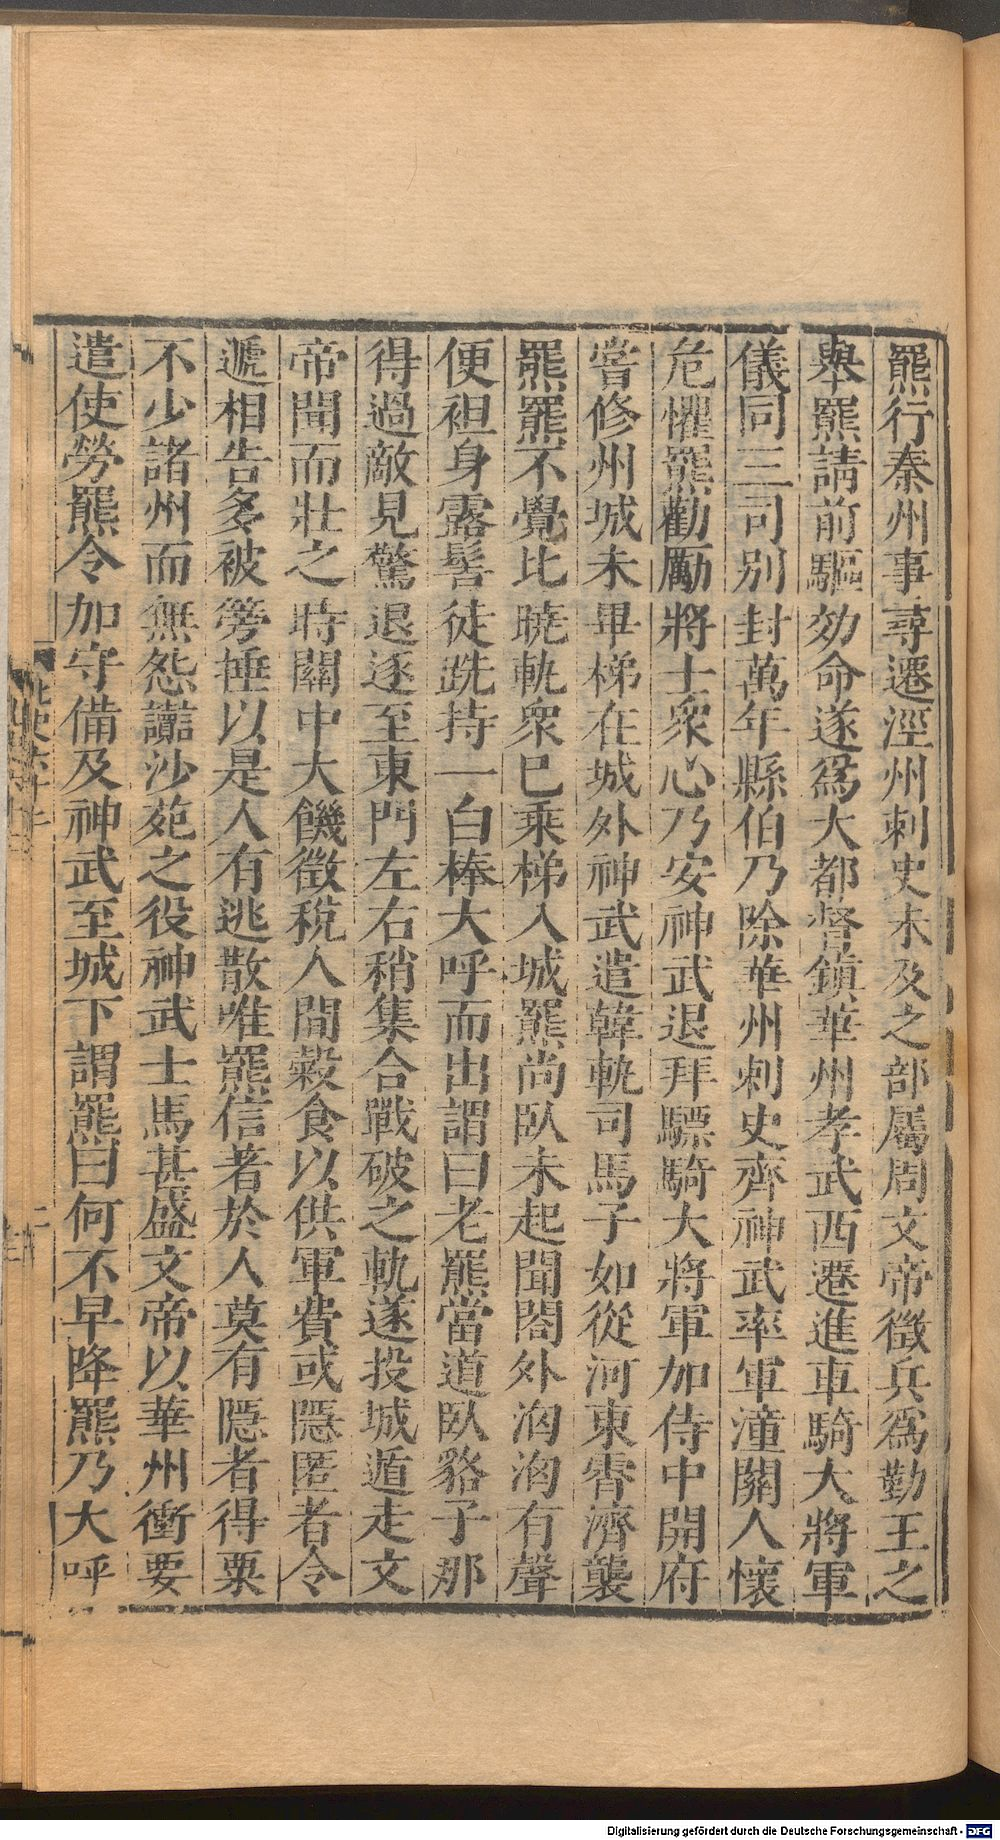 羆行秦州事尋遷涇州刺史未及之部屬周文帝徵兵爲勤王之
舉羆請前驅効命遂爲大都督鎮華州孝武西遷進車騎大將軍
儀同三司別封萬年縣伯乃除華州刺史齊神武率軍潼關人懷
危懼羆勸勵將士衆心乃安神武退拜驃騎大將軍加侍中開府
嘗修州城未畢梯在城外神武遣韓軌司馬子如從河東宵濟襲
羆羆不覺比曉軌衆已乘梯入城羆尚臥未起聞閤外洶洶有聲
便袒身露髻徒跣持一白棒大呼而出謂曰老羆當道臥貉子那
得過敵見驚退逐至東門左右稍集合戰破之軌遂投城遁走文
帝聞而壯之時關中大饑徵稅人間穀食以供軍費或隱匿者令
遞相告多被篣捶以是人有逃散唯羆信著於人莫有隱者得粟
不少諸州而無怨讟沙苑之役神武士馬甚盛文帝以華州衝要
遣使勞羆令加守備及神武至城下謂羆曰何不早降羆乃大呼
Digitalisierung gefördert durch die Deutsche Forschungsgemeinschaft - DFG